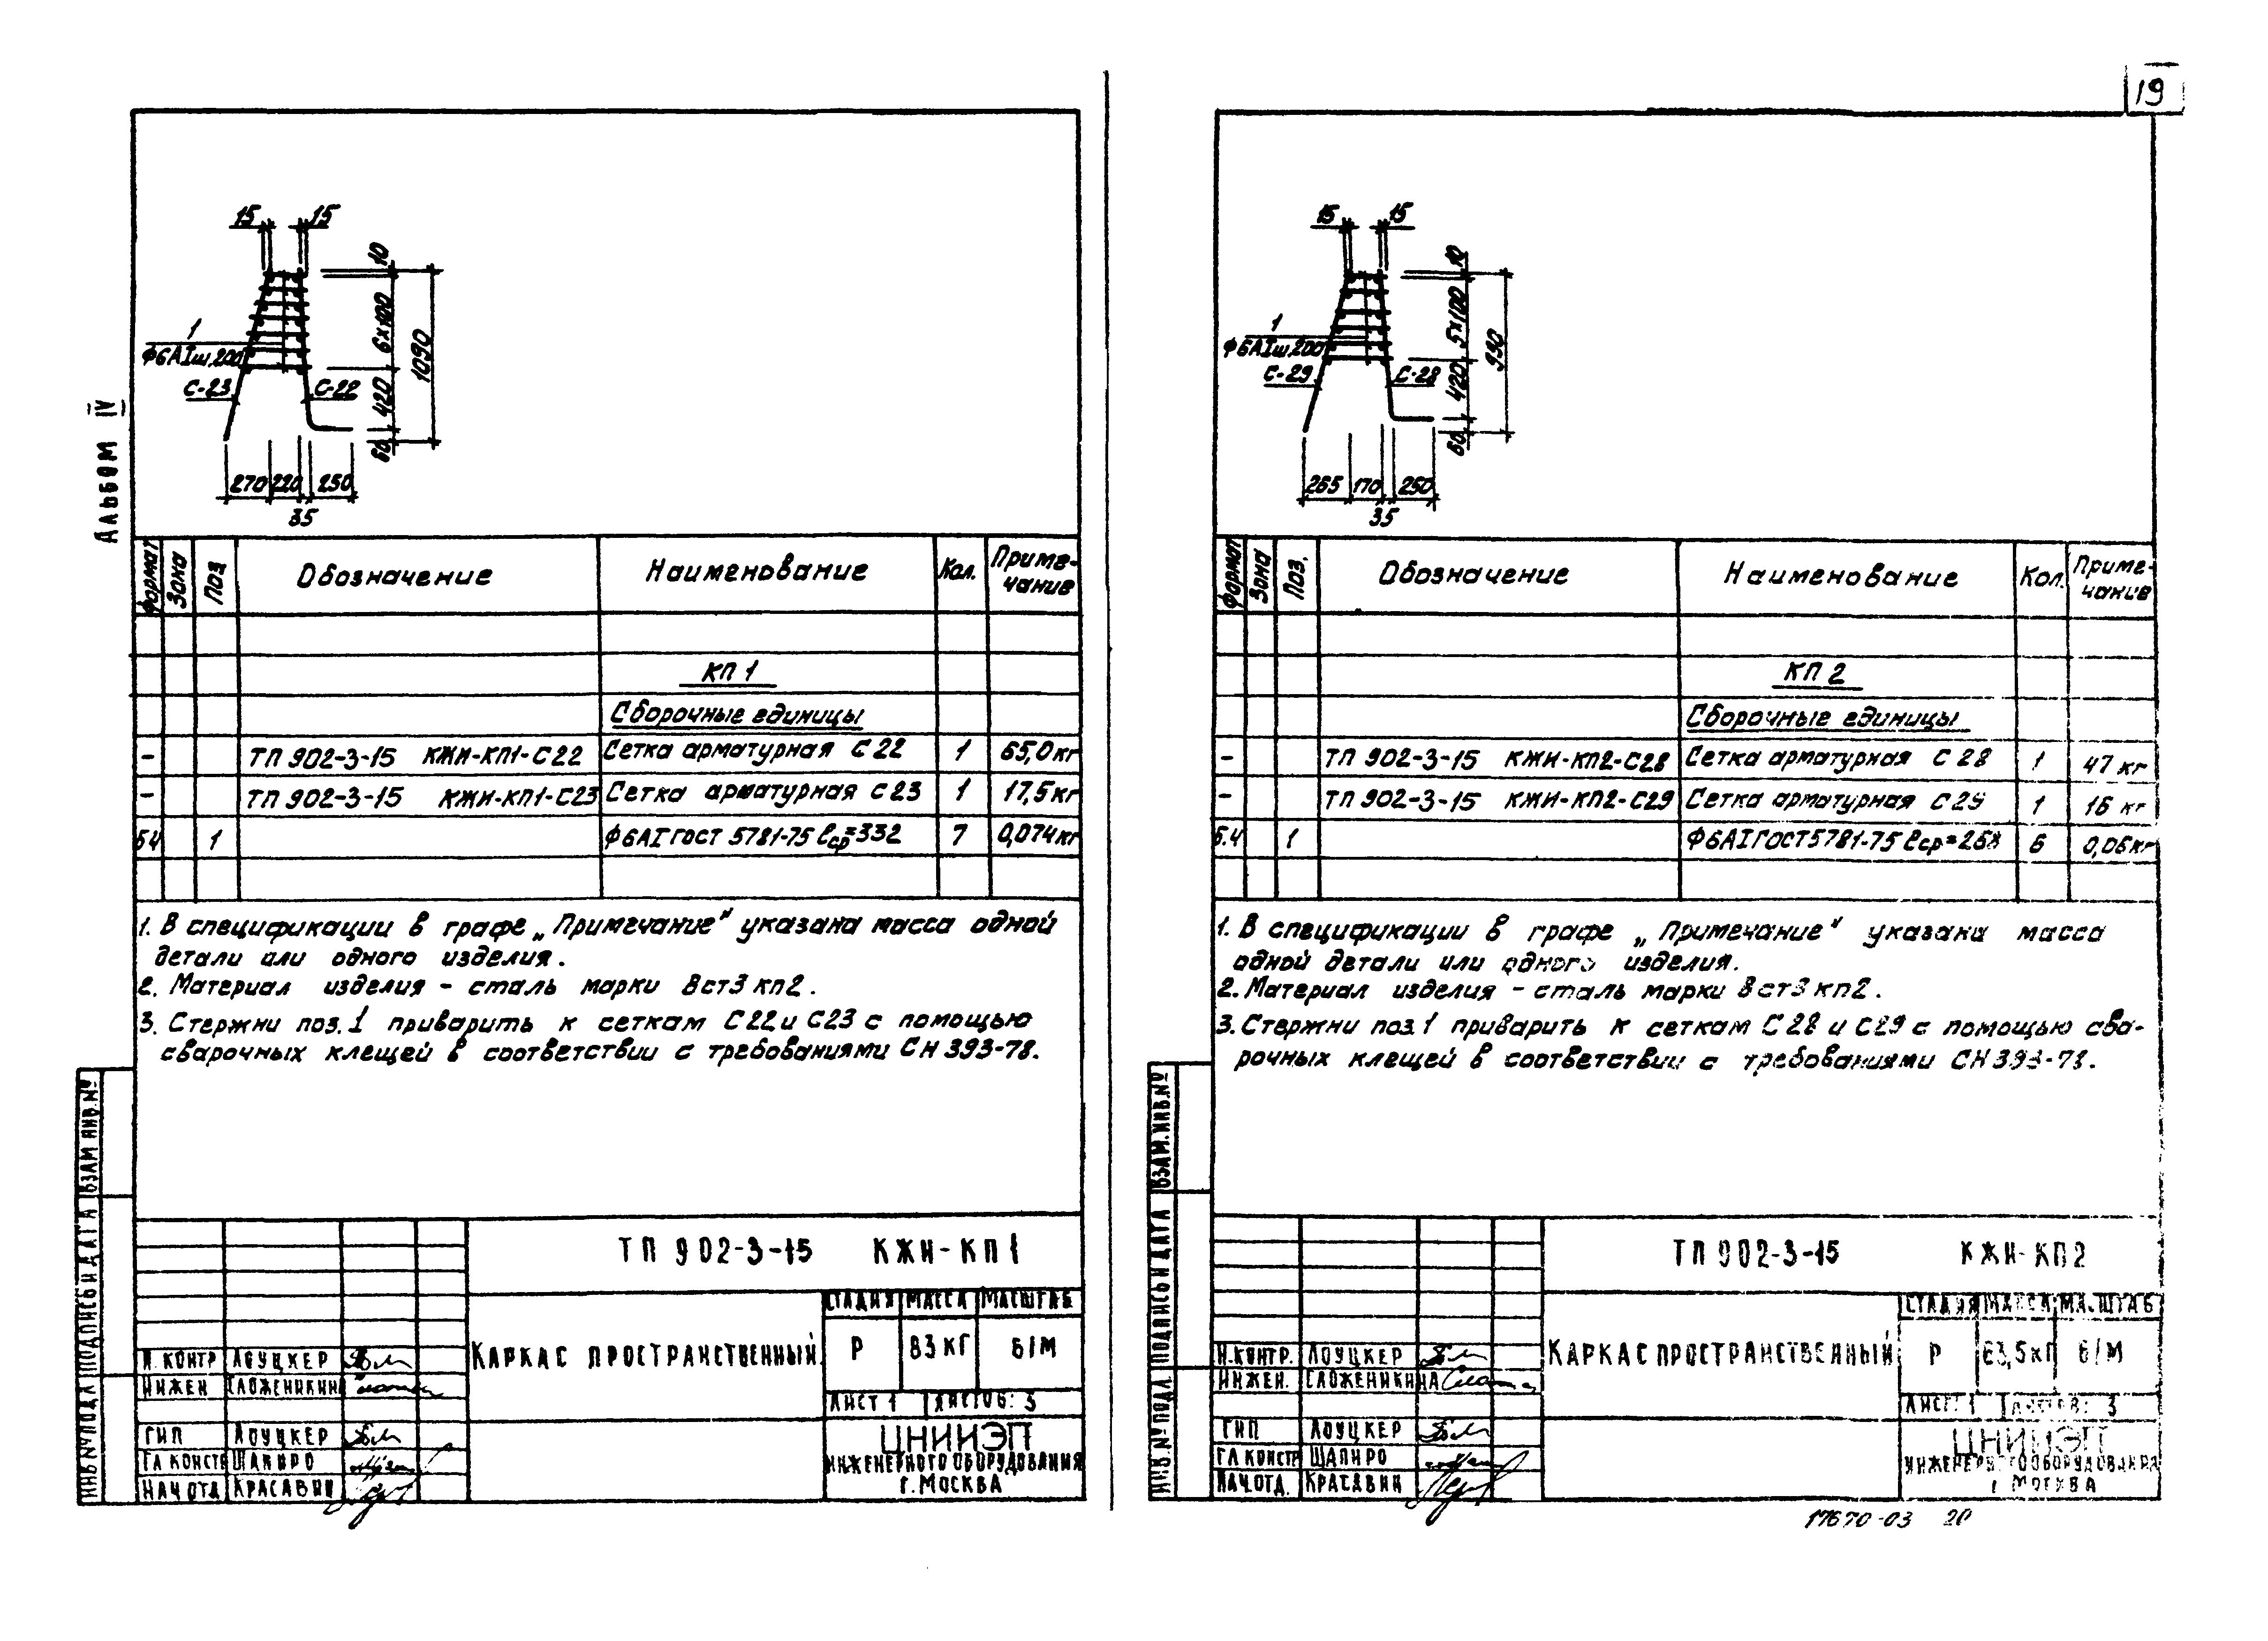 19
Альбом IV
15 15
10
6×100
1090
420
60
1
Ф6АIш.200
С-23 С-22
270 220 250
35
Формат Зона Поз Обозначение Наименование Кол. Примечание
КП 1
Сборочные единицы
- ТП 902-3-15 КЖИ-КП1-С22 Сетка арматурная С22 1 65,0кг
- ТП 902-3-15 КЖИ-КП1-С23 Сетка арматурная С23 1 17,5кг
Б4 1 Ф6АI ГОСТ 5781-75 ℓср=332 7 0,074кг
1. В спецификации в графе „Примечание" указана масса одной
детали или одного изделия.
2. Материал изделия - сталь марки Вст3кп2.
3. Стержни поз.1 приварить к сеткам С22 и С23 с помощью
сварочных клещей в соответствии с требованиями СН 393-78.
ВЗАМ ИНВ.№
ПОДПИСЬ И ДАТА
ИНВ № ПОДЛ
ТП 902-3-15 КЖИ-КП1
КАРКАС ПРОСТРАНСТВЕННЫЙ
СТАДИЯ МАССА МАСШТАБ
Р 83 КГ Б/М
ЛИСТ 1 ЛИСТОВ: 3
Н. КОНТР ЛОУЦКЕР
ИНЖЕН СЛОЖЕНИКИНА
ГИП ЛОУЦКЕР
ГЛ КОНСТР ШАПИРО
НАЧ ОТД КРАСАВИН
ЦНИИЭП
ИНЖЕНЕРНОГО ОБОРУДОВАНИЯ
г. МОСКВА
15 15
10
5×100
990
420
60
1
Ф6АIш.200
С-29 С-28
265 170 250
35
Формат Зона Поз. Обозначение Наименование Кол. Примечание
КП 2
Сборочные единицы
- ТП 902-3-15 КЖИ-КП2-С28 Сетка арматурная С28 1 47 кг
- ТП 902-3-15 КЖИ-КП2-С29 Сетка арматурная С29 1 16 кг
Б.4 1 Ф6АI ГОСТ 5781-75 ℓср=268 6 0,06кг
1. В спецификации в графе „Примечание" указана масса
одной детали или одного изделия.
2. Материал изделия - сталь марки Вст3кп2.
3. Стержни поз.1 приварить к сеткам С28 и С29 с помощью сва-
рочных клещей в соответствии с требованиями СН 393-78.
ВЗАМ. ИНВ. №
ПОДПИСЬ И ДАТА
ИНВ. № ПОДЛ.
ТП 902-3-15 КЖИ-КП2
КАРКАС ПРОСТРАНСТВЕННЫЙ
СТАДИЯ МАССА МАСШТАБ
Р 63,5кг Б/М
ЛИСТ 1 ЛИСТОВ: 3
Н.КОНТР. ЛОУЦКЕР
ИНЖЕН. СЛОЖЕНИКИНА
ГИП ЛОУЦКЕР
ГЛ КОНСТР ШАПИРО
НАЧ.ОТД. КРАСАВИН
ЦНИИЭП
ИНЖЕНЕРНОГО ОБОРУДОВАНИЯ
г. МОСКВА
17670-03 20